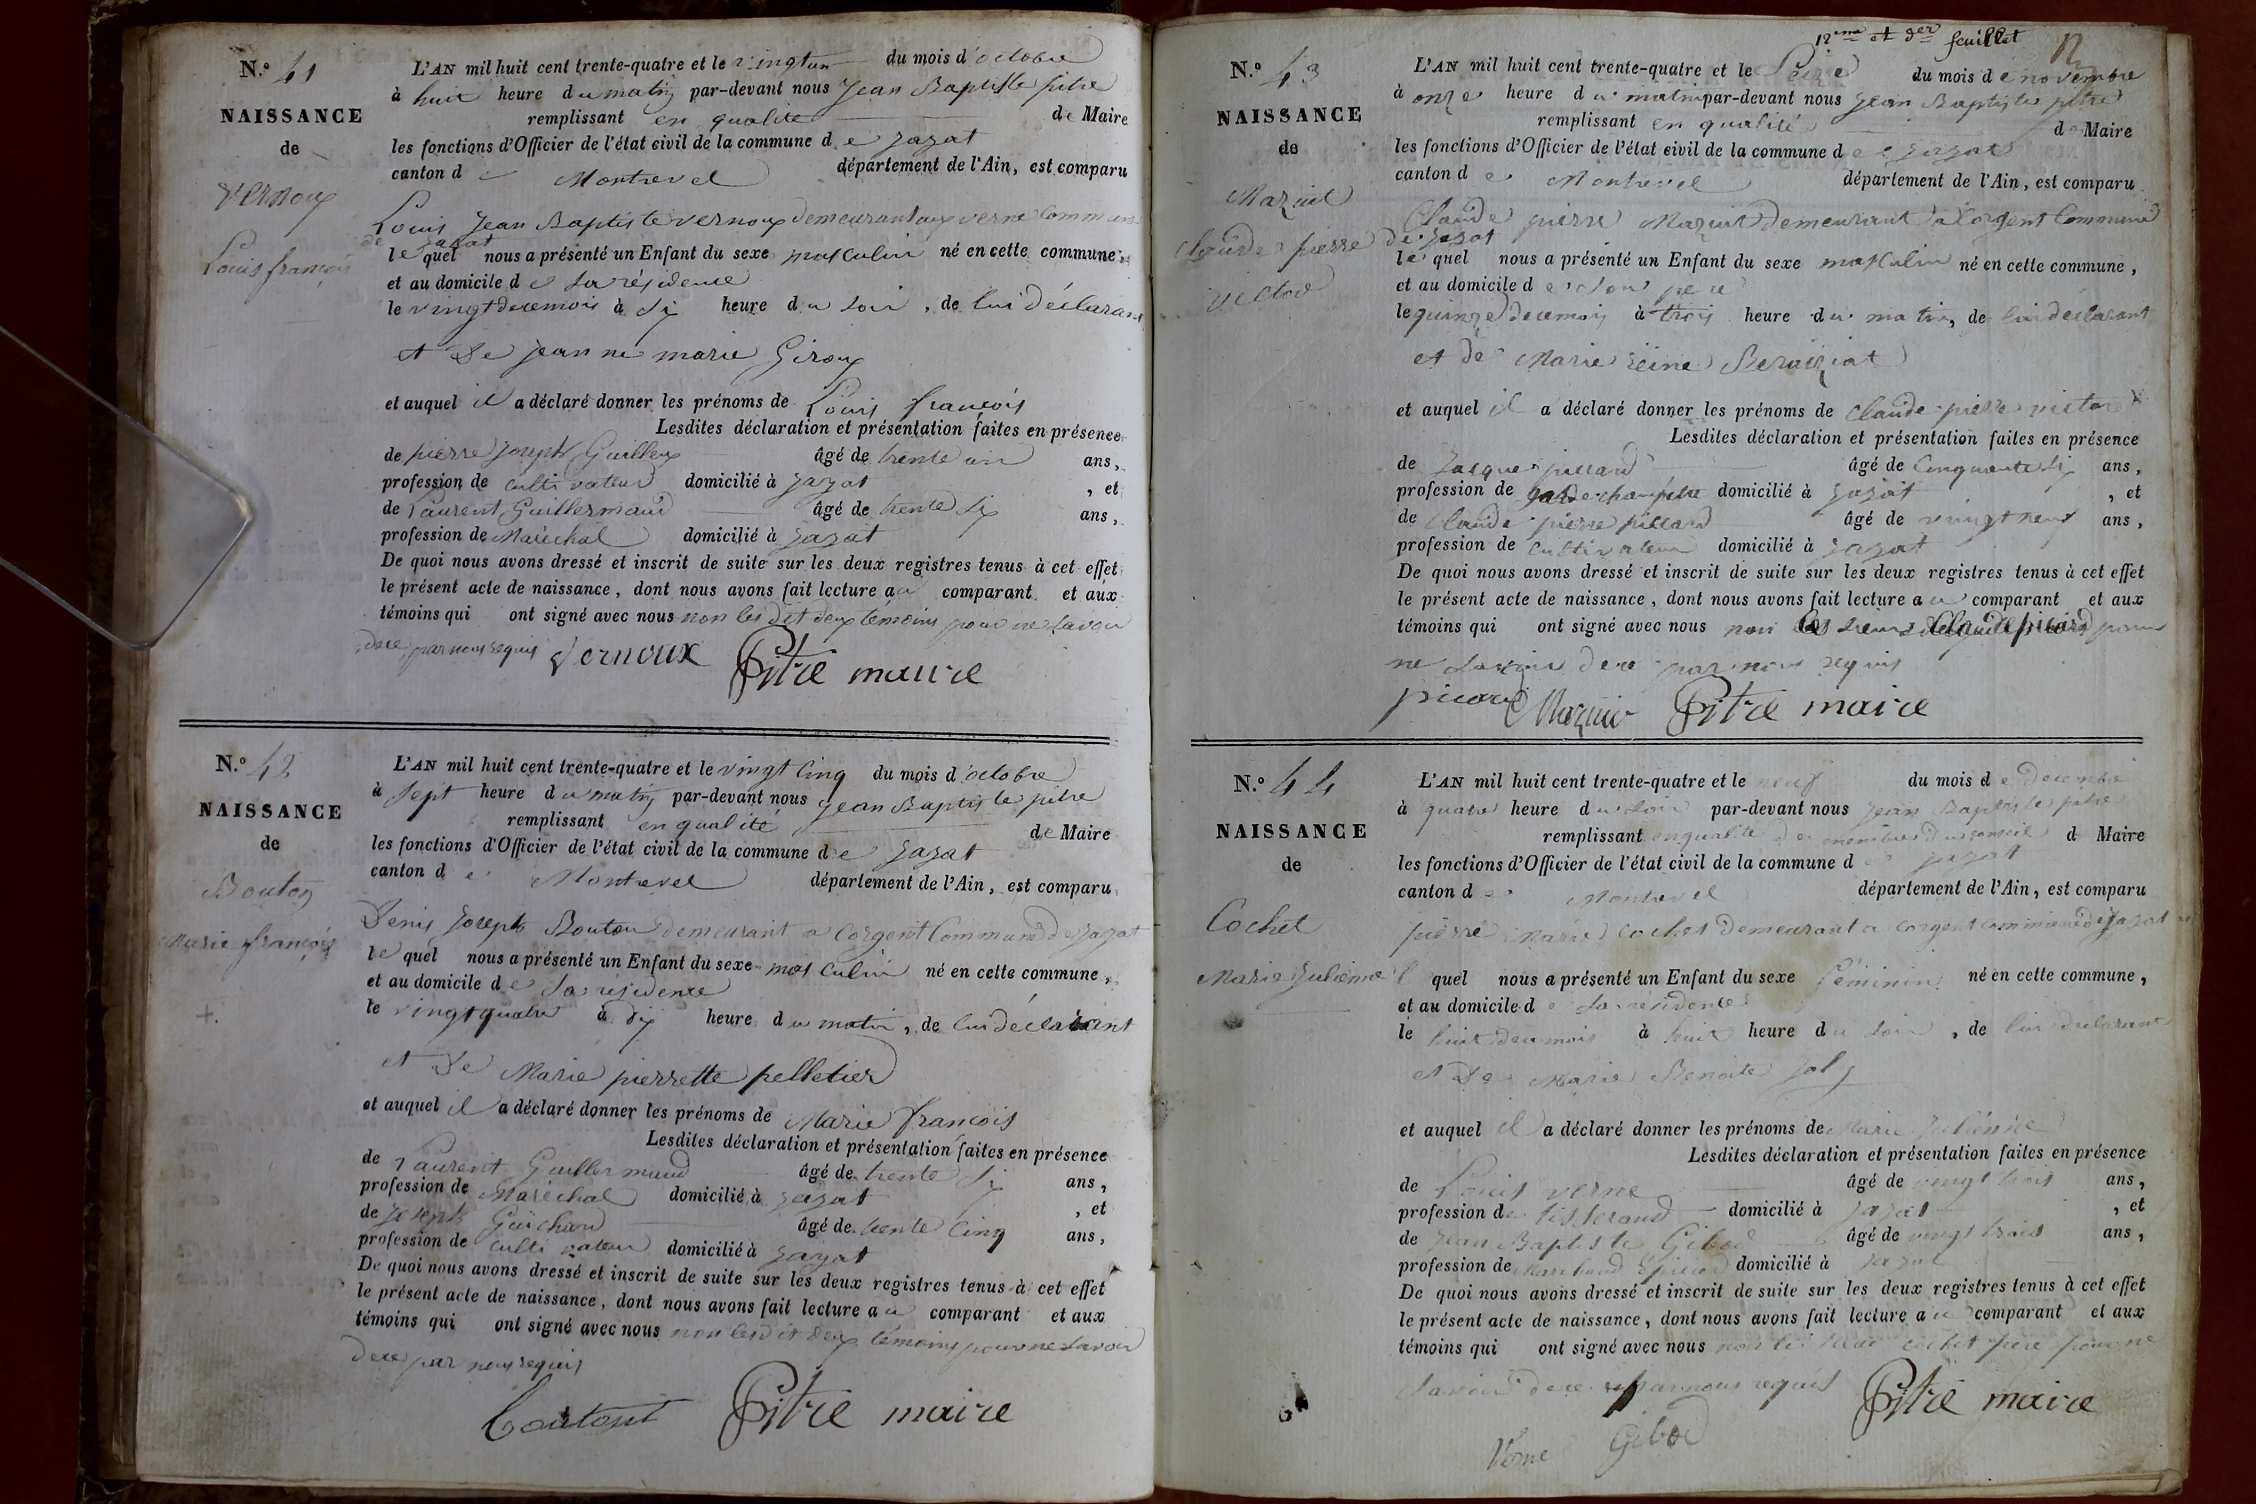 N.º 41
NAISSANCE
de
Vernoux
Louis françois
L'AN mil huit cent trente-quatre et le vingt un du mois d'octobre
à huit heure du matin par-devant nous Jean Baptiste pitre
remplissant en qualité de Maire
les fonctions d'Officier de l'état civil de la commune de jazat
canton de Montrevel département de l'Ain, est comparu
Louis Jean Baptiste vernoux demeurant aux verne Commune
de jazat
lequel nous a présenté un Enfant du sexe masculin né en cette commune,
et au domicile de sa résidence
le vingt dece mois à six heure du soir, de lui déclarant
et De jeanne marie Giroux
et auquel il a déclaré donner les prénoms de Louis françois
Lesdites déclaration et présentation faites en présence
de pierre joseph Guilleux âgé de trente un ans,
profession de cultivateur domicilié à jazat, et
de Laurent Guillermaud âgé de trente six ans,
profession de Maréchal domicilié à jazat
De quoi nous avons dressé et inscrit de suite sur les deux registres tenus à cet effet
le présent acte de naissance, dont nous avons fait lecture au comparant et aux
témoins qui ont signé avec nous non les dit deux témoins pour ne savoir
dece par nous requis Vernoux Pitre maire
N.º 42
NAISSANCE
de
Bouton
Marie françois
L'AN mil huit cent trente-quatre et le vingt Cinq du mois d'octobre
à Sept heure du matin par-devant nous Jean Baptiste pitre
remplissant en qualité de Maire
les fonctions d'Officier de l'état civil de la commune de jazat
canton de Montrevel département de l'Ain, est comparu
Denis Joseph Bouton demeurant a Corgent Commune De jazat
lequel nous a présenté un Enfant du sexe masculin né en cette commune,
et au domicile de sa résidence
le vingt quatre à dix heure du matin, de lui déclarant
et De Marie pierrette pelletier
et auquel il a déclaré donner les prénoms de Marie françois
Lesdites déclaration et présentation faites en présence
de Laurent Guillermaud âgé de trente six ans,
profession de Maréchal domicilié à jazat, et
de Joseph Guichard âgé de trente Cinq ans,
profession de cultivateur domicilié à jazat
De quoi nous avons dressé et inscrit de suite sur les deux registres tenus à cet effet
le présent acte de naissance, dont nous avons fait lecture au comparant et aux
témoins qui ont signé avec nous non lesdit deux témoins pour ne savoir
dece par nous requis
Pitre maire
12eme et 3er feuillet
12
N.º 43
NAISSANCE
de
Mazuit
Claude pierre
victor
L'AN mil huit cent trente-quatre et le Seize du mois de novembre
à onze heure du matin par-devant nous Jean Baptiste pitre
remplissant en qualité de Maire
les fonctions d'Officier de l'état civil de la commune de jazat
canton de Montrevel département de l'Ain, est comparu
Claude pierre Mazuit demeurant à Corgent Commune
de jazat
lequel nous a présenté un Enfant du sexe masculin né en cette commune,
et au domicile de son pere
le quinze decemois à trois heure du matin, de lui déclarant
et de Marie reine Beraiziat
et auquel il a déclaré donner les prénoms de Claude pierre victor
Lesdites déclaration et présentation faites en présence
de Jacque âgé de Cinquante six ans,
profession de garde champêtre domicilié à jazat, et
de Claude pierre âgé de vingt neuf ans,
profession de cultivateur domicilié à jazat
De quoi nous avons dressé et inscrit de suite sur les deux registres tenus à cet effet
le présent acte de naissance, dont nous avons fait lecture au comparant et aux
témoins qui ont signé avec nous non pour
ne savoir dece par nous requis
picard Mazuit Pitre maire
N.º 44
NAISSANCE
de
Cochet
Marie Julienne
L'AN mil huit cent trente-quatre et le neuf du mois de decembre
à quatre heure du soir par-devant nous Jean Baptiste pitre
remplissant en qualité de membre du conseil de Maire
les fonctions d'Officier de l'état civil de la commune de jazat
canton de Montrevel département de l'Ain, est comparu
pierre Marie Cochet Demeurant a corgent commune de jazat
lequel nous a présenté un Enfant du sexe féminin né en cette commune,
et au domicile de sa résidence
le huit decemois à huit heure du soir, de lui déclarant
et De Marie Benoite Joly
et auquel il a déclaré donner les prénoms de Marie Julienne
Lesdites déclaration et présentation faites en présence
de Louis verne âgé de vingt trois ans,
profession de tisserand domicilié à jazat, et
de Jean Baptiste Gibod âgé de vingt trois ans,
profession de Marchand domicilié à jazat
De quoi nous avons dressé et inscrit de suite sur les deux registres tenus à cet effet
le présent acte de naissance, dont nous avons fait lecture au comparant et aux
témoins qui ont signé avec nous non le cochet pere pour ne
savoir dece par nous requis Pitre maire
Verne Gibod